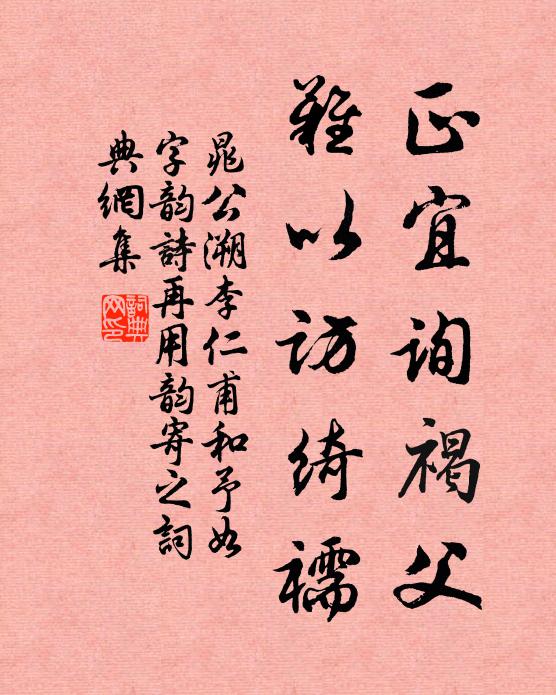 正宜询褐父
难以访绮襦
晁公溯李仁甫和予如
字韵诗再用韵寄之词
典网集
词典网印